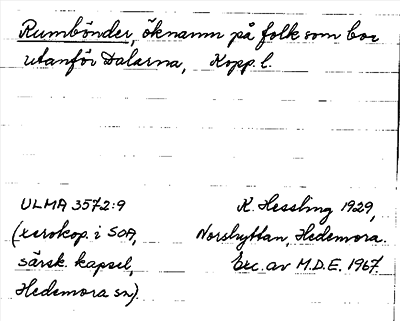 Rumbönder, öknamn på folk som bor
utanför Dalarna, Kopp. l.
ULMA 3572:9
(xerokop. i SOA,
särsk. kapsel,
Hedemora sn).
K. Hessling 1929,
Norshyttan, Hedemora.
Exc. av M.D.E. 1967.